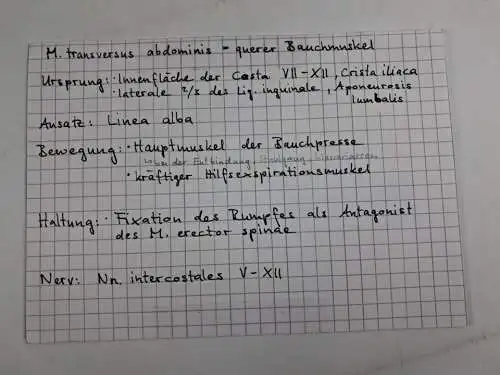 M. transversus abdominis – querer Bauchmuskel
Ursprung: · Innenfläche der Costa VII – XII, Crista iliaca
· laterale 2/3 des Lig. inguinale, Aponeurosis
lumbalis
Ansatz: Linea alba
Bewegung: · Hauptmuskel der Bauchpresse
der Entbindung, Stuhlgang,
· kräftiger Hilfsexspirationsmuskel
Haltung: · Fixation des Rumpfes als Antagonist
des M. erector spinae
Nerv: Nn. intercostales V – XII